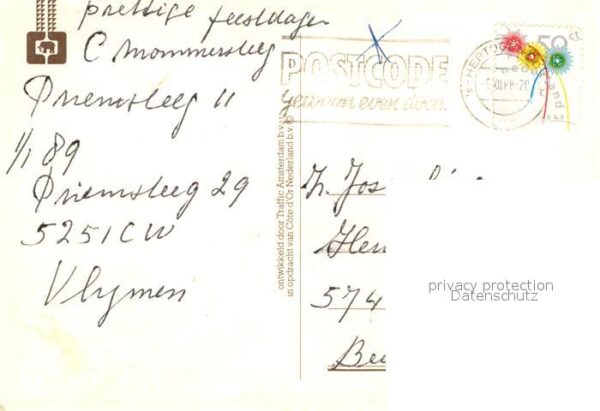 prettige feestdagen
C Mommersteeg
Priemsteeg 11
1/1 89
Priemsteeg 29
5251CW
Vlymen
POSTCODE
gewoon even doen
's-HERTOGEN
50 ct
nederland
ontwikkeld door Traffic Amsterdam b.v.
in opdracht van Côte d'Or Nederland b.v. ©
574
privacy protection
Datenschutz